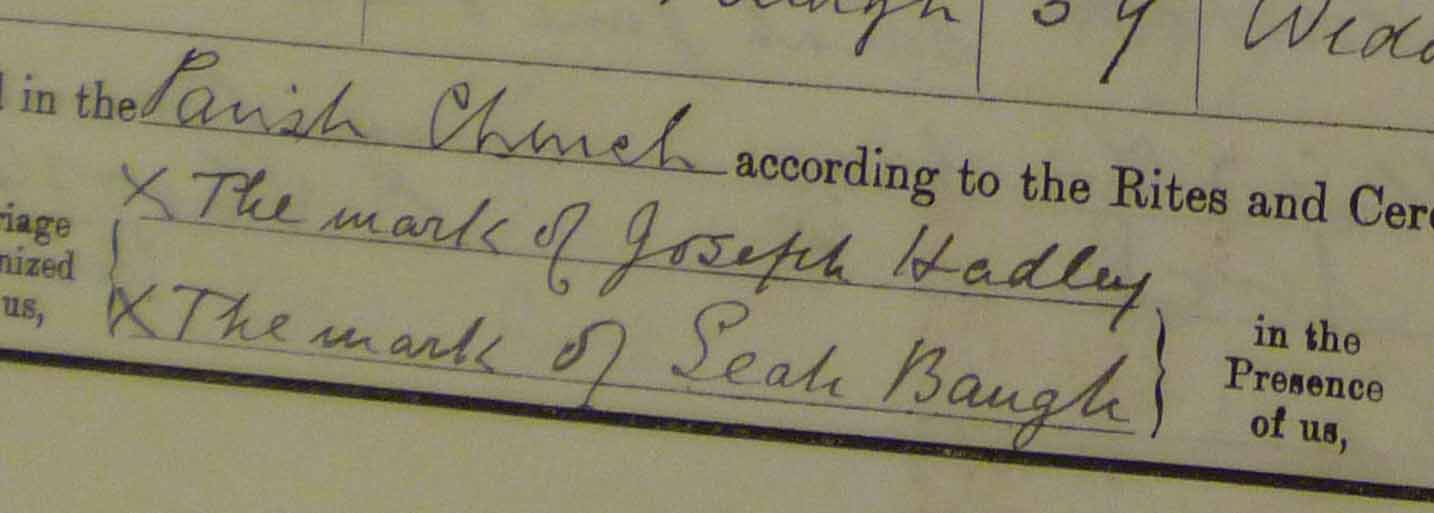 39
in the Parish Church according to the Rites and
X The mark of Joseph Hadley
X The mark of Leah Baugh
us,
in the
Presence
of us,